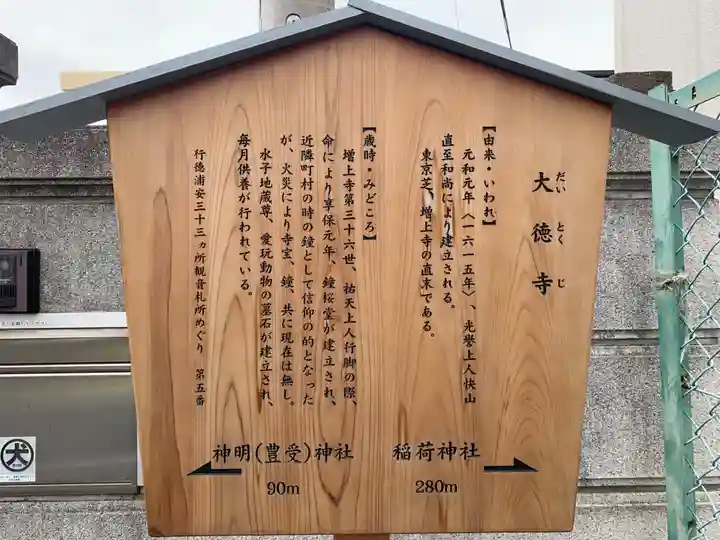 大徳寺
だいとくじ
【由来・いわれ】
元和元年〈一六一五年〉、光誉上人快山
直至和尚により建立される。
東京芝、増上寺の直末である。
【歳時・みどころ】
増上寺第三十六世、祐天上人行脚の際、
命により享保元年、鐘桜堂が建立され、
近隣町村の時の鐘として信仰の的となった
が、火災により寺宝、鐘、共に現在は無し。
水子地蔵尊、愛玩動物の墓石が建立され、
毎月供養が行われている。
行徳浦安三十三ヵ所観音札所めぐり 第五番
神明(豊受)神社
90m
稲荷神社
280m
犬